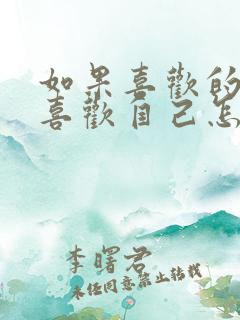 如果喜歡的
喜歡自己怎
李曙君
未经同意禁止转载